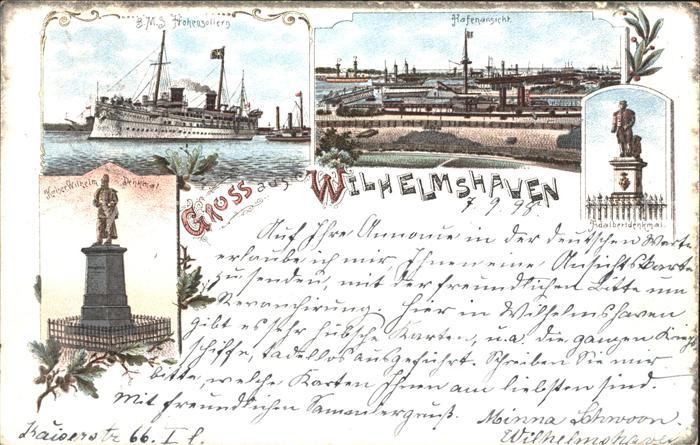 S.M.S. Hohenzollern
Hafenansicht.
Kaiser Wilhelm Denkmal
Adalbertdenkmal.
Gruss aus Wilhelmshaven
7.9.98.
Auf Ihre Annonce in der deutschen Warte
erlaube ich mir, Ihnen eine Ansichtskarte
zu senden, mit der freundlichen Bitte um
Revanchirung. Hier in Wilhelmshaven
gibt es sehr hübsche Karten, u.a. die ganzen Kriegs
schiffe, tadellos ausgeführt. Schreiben Sie mir
bitte, welche Karten Ihnen am liebsten sind.
Mit freundlichen Sammlergruß. Minna Schwoon
Kaiserstr 66. I l. Wilhelmshaven